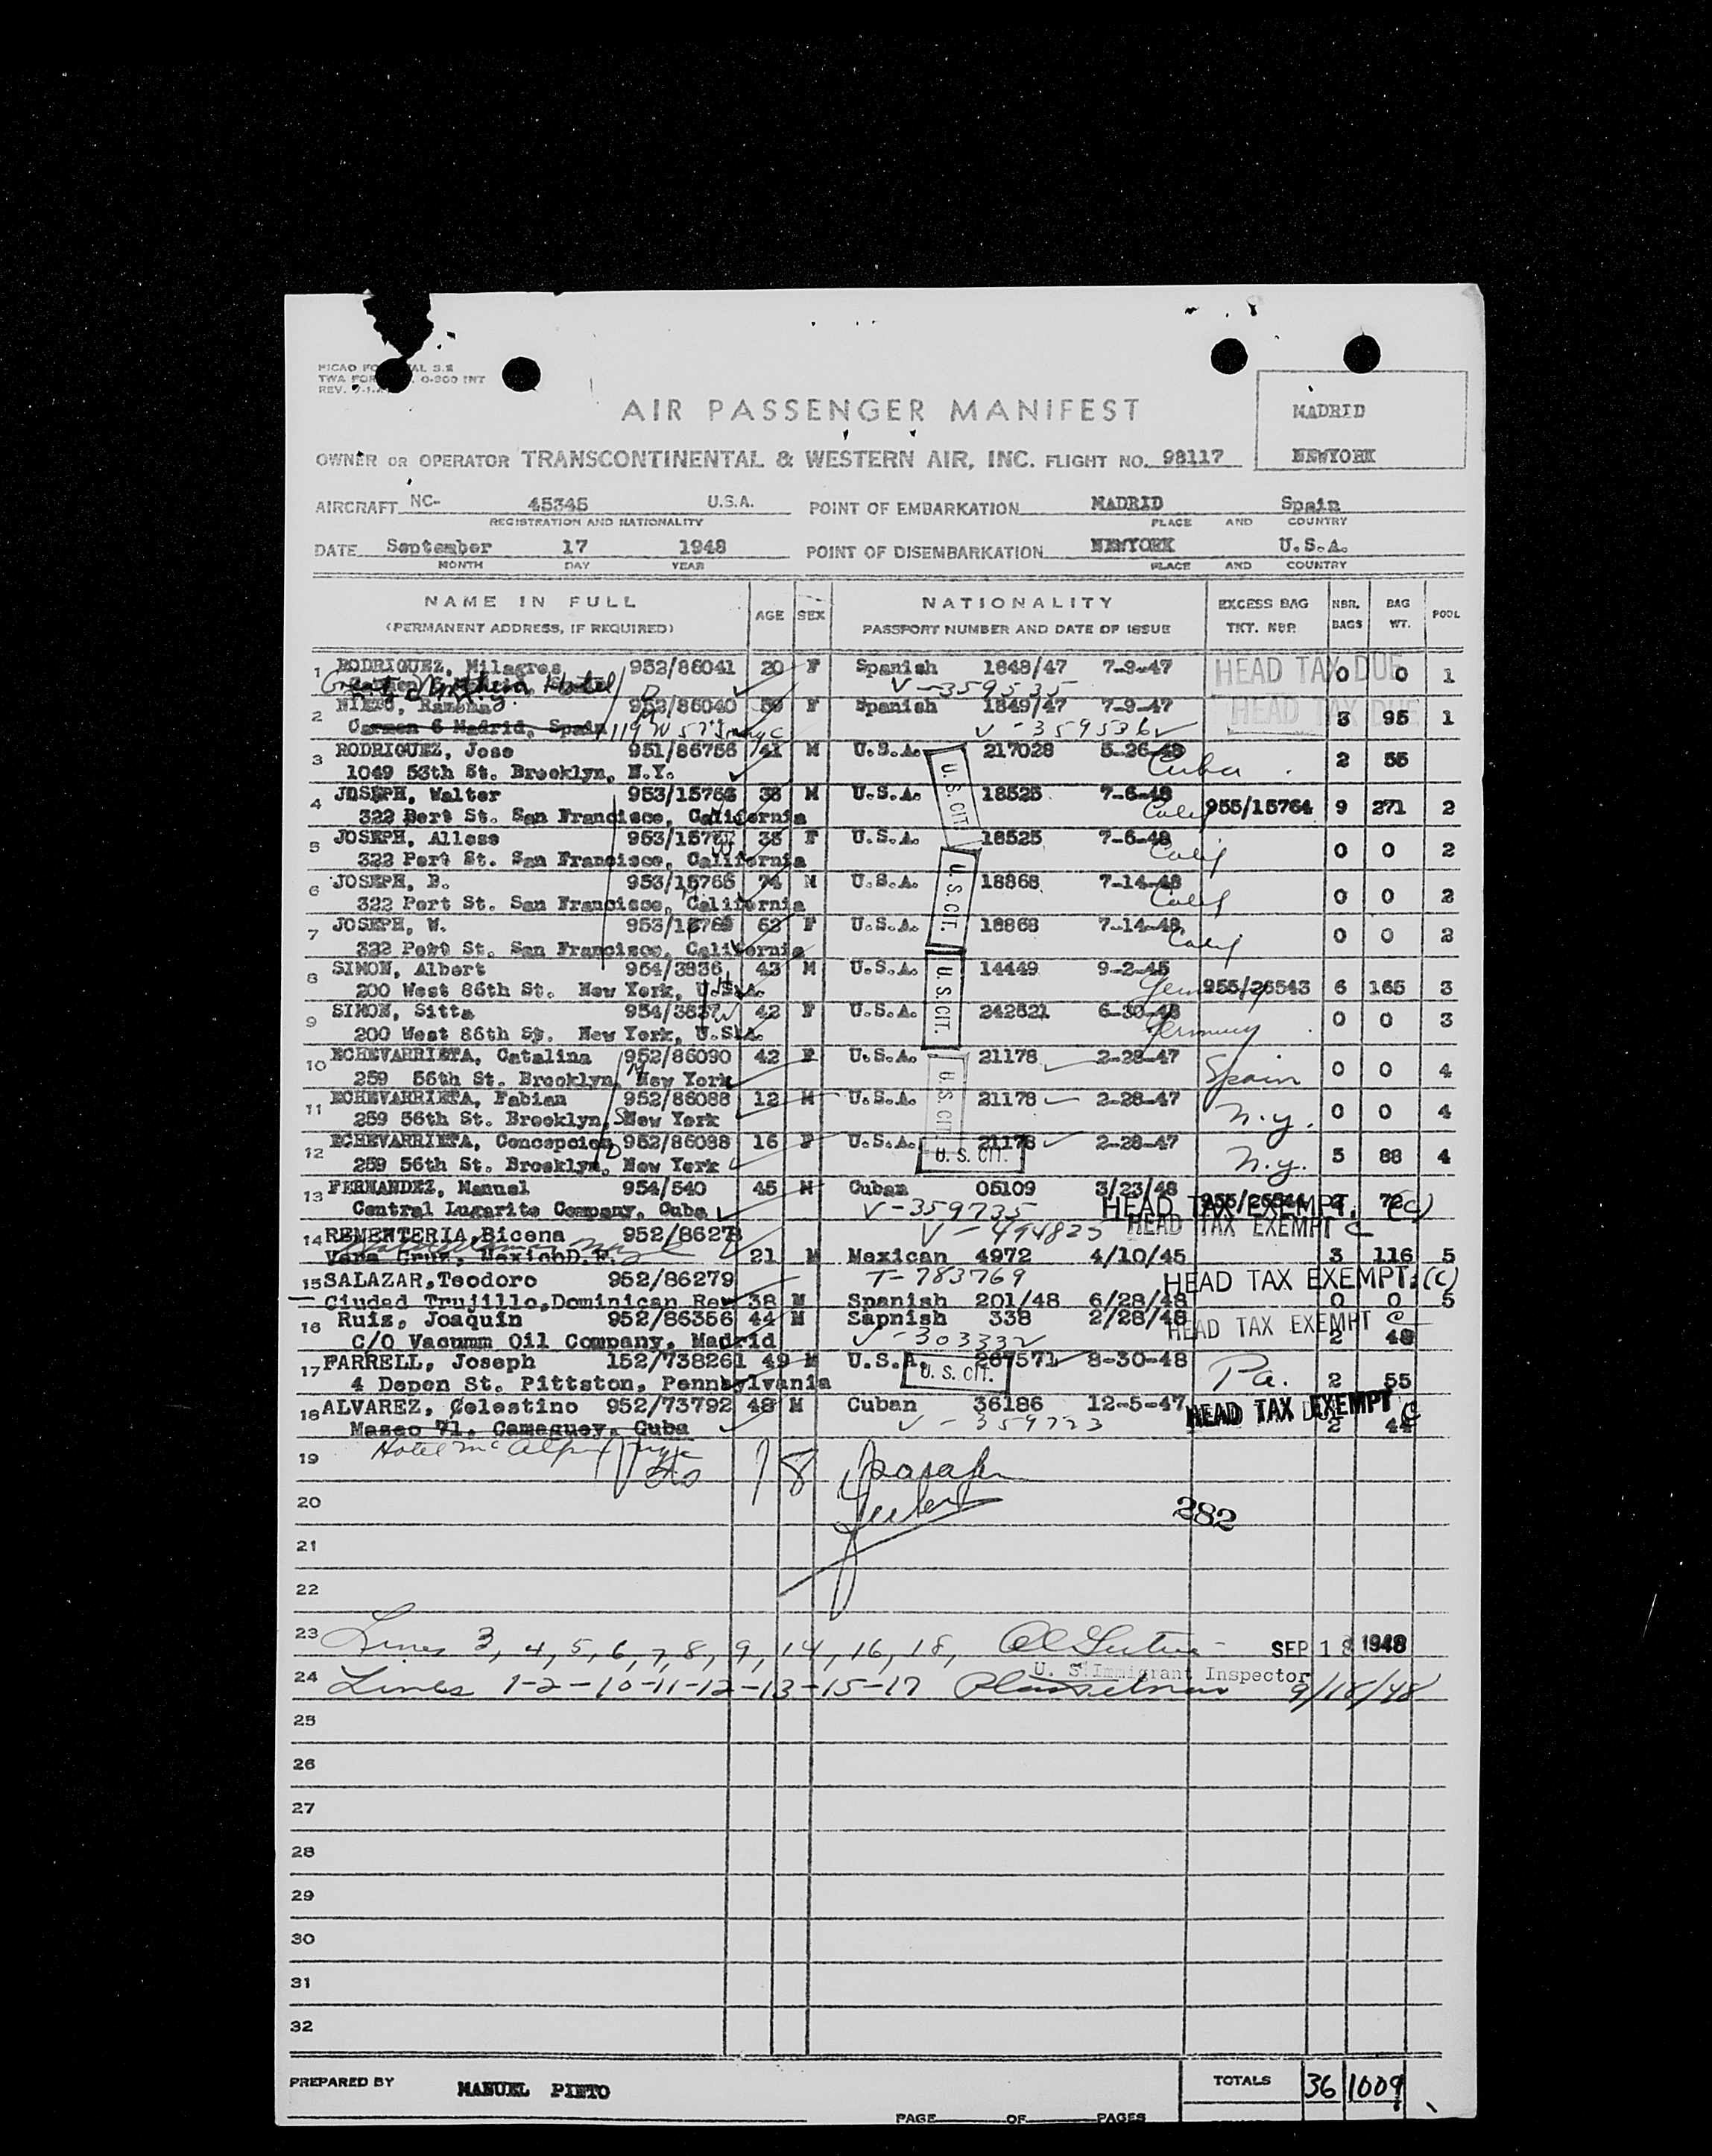 AIR PASSENGER MANIFEST
MADRID
NEWYORK
OWNER OR OPERATOR TRANSCONTINENTAL & WESTERN AIR, INC. FLIGHT NO. 98117
AIRCRAFT NC- 45345 U.S.A. POINT OF EMBARKATION MADRID Spain
REGISTRATION AND NATIONALITY PLACE AND COUNTRY
DATE September 17 1948 POINT OF DISEMBARKATION NEWYORK U.S.A.
MONTH DAY YEAR PLACE AND COUNTRY
NAME IN FULL AGE SEX NATIONALITY EXCESS BAG NBR. BAG POOL
(PERMANENT ADDRESS, IF REQUIRED) PASSPORT NUMBER AND DATE OF ISSUE TKT. NBR. BAGS WT.
1 RODRIGUEZ, Milagros 952/86041 20 F Spanish 1848/47 7-9-47 HEAD TAX DUE 0 0 1
Great Northern Hotel V-359535
2 NIETO, Ramona 952/86040 F Spanish 1849/47 7-9-47 HEAD TAX DUE 3 95 1
Carmen 6 Madrid, Spain 119 W 57 St nyc V-359536
3 RODRIGUEZ, Jose 951/86756 41 M U.S.A. 217028 5-26-48 Cuba 2 55
1049 53th St. Brooklyn, N.Y.
U.S. CIT.
4 JOSEPH, Walter 953/15763 38 M U.S.A. 18525 7-6-48 Calif 955/15764 9 271 2
322 Port St. San Francisco, California
5 JOSEPH, Alless 35 F U.S.A. 18525 7-6-48 Calif 0 0 2
322 Port St. San Francisco, California
U.S. CIT.
6 JOSEPH, B. 953/15768 74 M U.S.A. 18868 7-14-48 Calif 0 0 2
322 Port St. San Francisco, California
7 JOSEPH, W. 953/15769 62 F U.S.A. 18868 7-14-48 Calif 0 0 2
322 Port St. San Francisco, California
U.S. CIT.
8 SIMON, Albert 954/3836 43 M U.S.A. 14449 9-2-45 Germany 955/25543 6 165 3
200 West 86th St. New York, U.S.A.
9 SIMON, Sitta 954/3837 42 F U.S.A. 242521 6-30-48 Germany 0 0 3
200 West 86th St. New York, U.S.A.
10 ECHEVARRIETA, Catalina 952/86090 42 F U.S.A. 21178 2-28-47 Spain 0 0 4
259 56th St. Brooklyn, New York
U.S. CIT.
11 ECHEVARRIETA, Fabian 952/86088 12 M U.S.A. 21178 2-28-47 N.Y. 0 0 4
259 56th St. Brooklyn, New York
12 ECHEVARRIETA, Concepcion 952/86088 16 F U.S.A. 21178 2-28-47 N.Y. 5 88 4
259 56th St. Brooklyn, New York U. S. CIT.
13 FERNANDEZ, Manuel 954/540 45 M Cuban 05109 3/23/48
Central Lugarite Company, Cuba V-359735 HEAD TAX EXEMPT. (C)
14 REMENTERIA, Bicena 952/86278 V-494823 HEAD TAX EXEMPT C
Vera Cruz, MexicoD.F. 21 M Mexican 4972 4/10/45 3 116 5
15 SALAZAR,Teodoro 952/86279 T-783769 HEAD TAX EXEMPT. (C)
Ciudad Trujillo,Dominican Rep 38 M Spanish 201/48 6/28/48 0 0 5
16 Ruiz, Joaquin 952/86356 44 M Sapnish 338 2/28/48 HEAD TAX EXEMPT C
C/O Vacumm Oil Company, Madrid V-303332 2 48
17 FARRELL, Joseph 152/738261 49 M U.S.A. 267571 8-30-48 Pa. 2 55
4 Depon St. Pittston, Pennsylvania U. S. CIT.
18 ALVAREZ, Celestino 952/73792 48 M Cuban 36186 12-5-47 HEAD TAX EXEMPT C
Maseo 71, Camaguey, Cuba V-359723 2 44
19 Hotel McAlpin 18
20 282
21
22
23 Lines 3, 4, 5, 6, 7, 8, 9, 14, 16, 18, SEP 18 1948
U. S. Immigrant Inspector
24 Lines 1-2-10-11-12-13-15-17 9/18/48
25
26
27
28
29
30
31
32
PREPARED BY MANUEL PINTO TOTALS 36 1009
PAGE OF PAGES